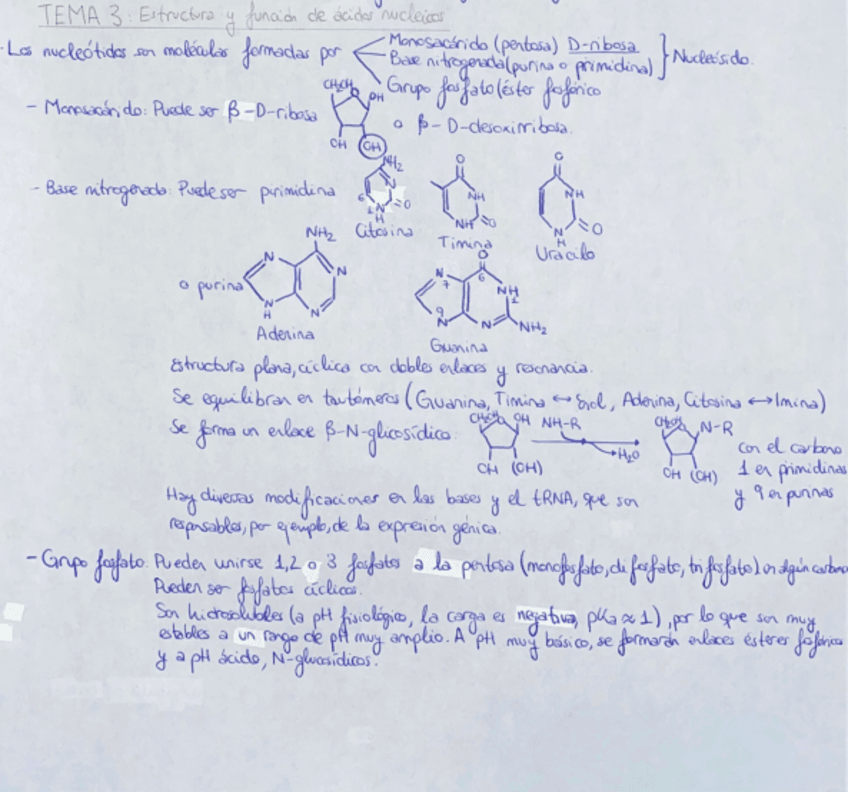 TEMA 3: Estructura y función de ácidos nucleicos
· Los nucleótidos son moléculas formadas por
Monosacárido (pentosa) D-ribosa
Base nitrogenada (purina o primidina)
Nucleósido.
Grupo fosfato (éster fosfórico
- Monosacárido: Puede ser β-D-ribosa
OH
OH
OH
o β-D-desoxirribosa.
- Base nitrogenada: Puede ser pirimidina
NH2
N
6
1
N
H
O
Citosina
O
NH
NH
O
Timina
O
NH
N
H
O
Uracilo
o purina
NH2
N
N
N
N
H
Adenina
O
N
7
6
NH
1
9
N
N
NH2
Guanina
Estructura plana, cíclica con dobles enlaces y resonancia.
Se equilibran en tautómeros (Guanina, Timina ↔ Enol, Adenina, Citosina ↔ Imina)
Se forma un enlace β-N-glicosídico:
OH
NH-R
H2O
OH (OH)
N-R
OH (OH)
con el carbono
1 en primidinas
y 9 en purinas
Hay diversas modificaciones en las bases y el tRNA, que son
responsables, por ejemplo, de la expresión génica.
- Grupo fosfato: Pueden unirse 1,2 o 3 fosfatos a la pentosa (monofosfato, difosfato, trifosfato) en algún carbono
Pueden ser fosfatos cíclicos.
Son hidrosolubles (a pH fisiológico, la carga es negativa, pKa ≈ 1), por lo que son muy
estables a un rango de pH muy amplio. A pH muy básico, se formarán enlaces ésteres fosfórico
y a pH ácido, N-glucosídicos.